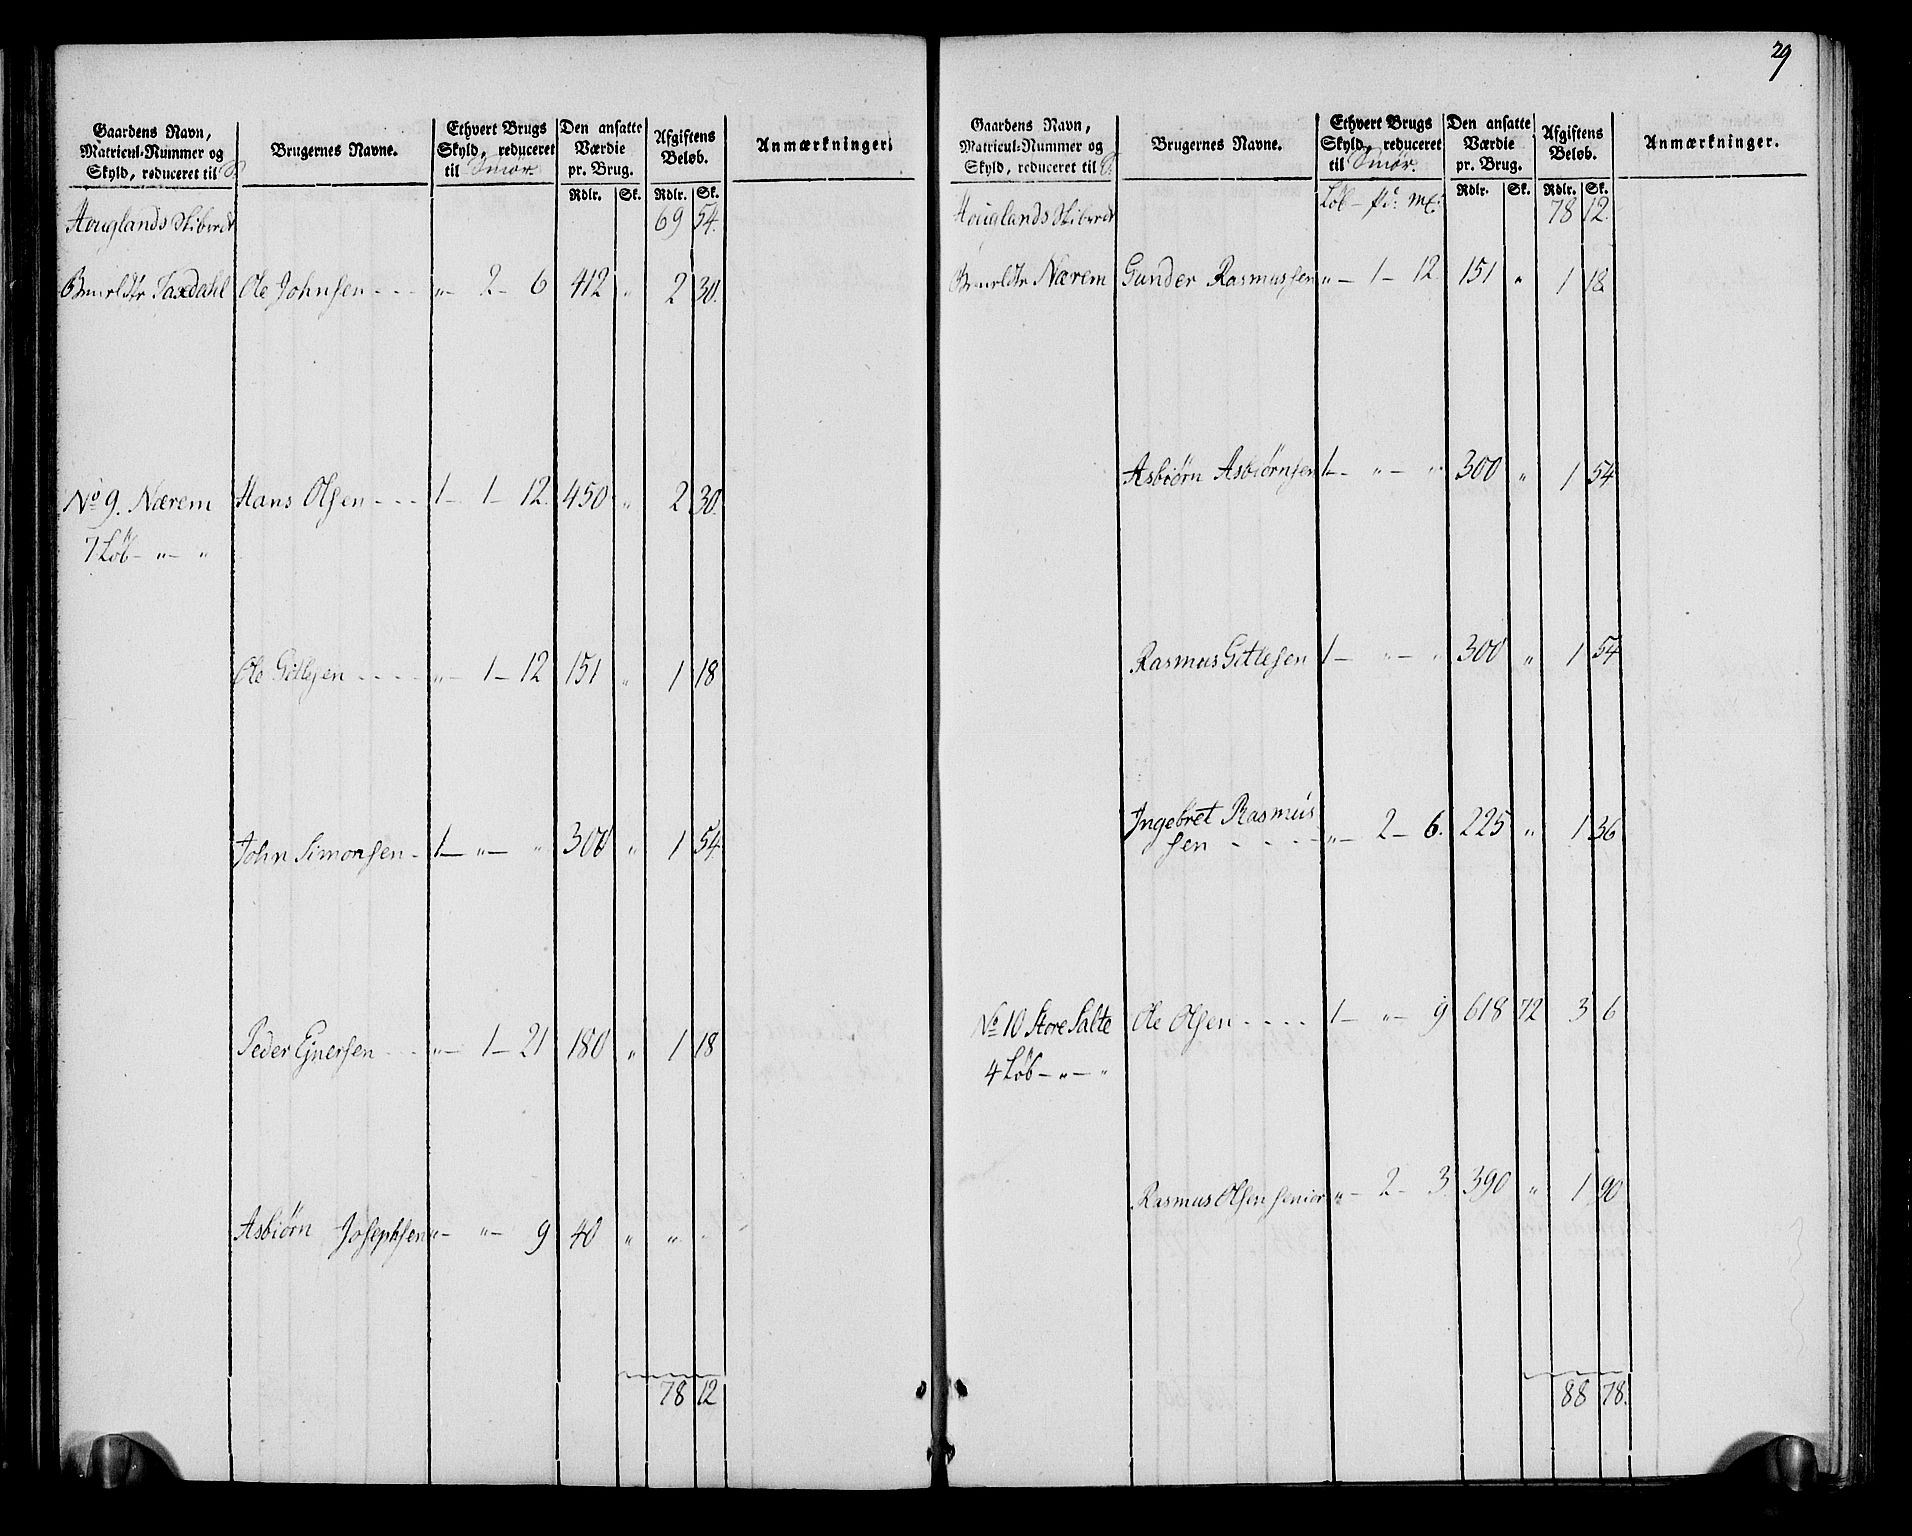 29
Gaardens Navn,
Matricul-Nummer og
Skyld, reduceret til S
Brugernes Navne.
Ethvert Brugs
Skyld, reduceret
til Smør.
Den ansatte
Værdie
pr. Brug.
Rdlr. Sk.
Afgiftens
Beløb.
Rdlr. Sk.
Anmærkninger.
Houglands Skibrede 69 54.
Taxdahl Ole Johnsen - - - „ - 2 - 6 412 „ 2 30.
No 9. Nærem Hans Olsen - - - 1 - 1 - 12. 450 „ 2 30.
7 Løb - „ - „
Ole Gitlesen - - - - „ - 1 - 12 151 „ 1 18
John Simonsen - 1 - „ - „ 300 „ 1 54.
Peder Ejnersen - - - „ - 1 - 21 180 „ 1 18
Asbiørn Josephsen „ - „ - 9 40 „ „ „
78 12
Gaardens Navn,
Matricul-Nummer og
Skyld, reduceret til S
Brugernes Navne.
Ethvert Brugs
Skyld, reduceret
til Smør.
Den ansatte
Værdie
pr. Brug.
Rdlr. Sk.
Afgiftens
Beløb.
Rdlr. Sk.
Anmærkninger.
Løb - pd: mk:
Houglands Skibrede 78 12.
Nærem Gunder Rasmussen „ - 1 - 12. 151 „ 1 18.
Asbiørn Asbiørnsen 1 - „ - „ 300 „ 1 54
Rasmus Gitlesen 1 - „ - „ 300 „ 1 54
Ingebret Rasmus
sen - - - - „ - 2 - 6. 225 „ 1 36
No 10 Store Salte Ole Olsen - - - - 1 - „ - 9 618 72 3 6
4 Løb - „ - „
Rasmus Olsen senior „ - 2 - 3. 390 „ 1 90
88 78.